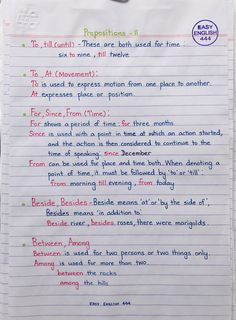 Prepositions - 11
EASY
ENGLISH
444
To, till (until) - These are both used for time :
six to nine, till twelve
To, At (Movement) :
To is used to express motion from one place to another.
At expresses place or position.
For, Since, From (Time) :
For shows a period of time : for three months
Since is used with a point in time at which an action started,
and the action is then considered to continue to the
time of speaking. since December
From can be used for place and time both. When denoting a
point of time, it must be followed by 'to' or 'till' :
From morning till evening, From today
Beside, Besides - Beside means 'at' or 'by the side of',
Besides means 'in addition to.
Beside river, besides roses, there were marigolds.
Between, Among
Between is used for two persons or two things only.
Among is used for more than two.
between the rocks
among the hills
EASY ENGLISH 444